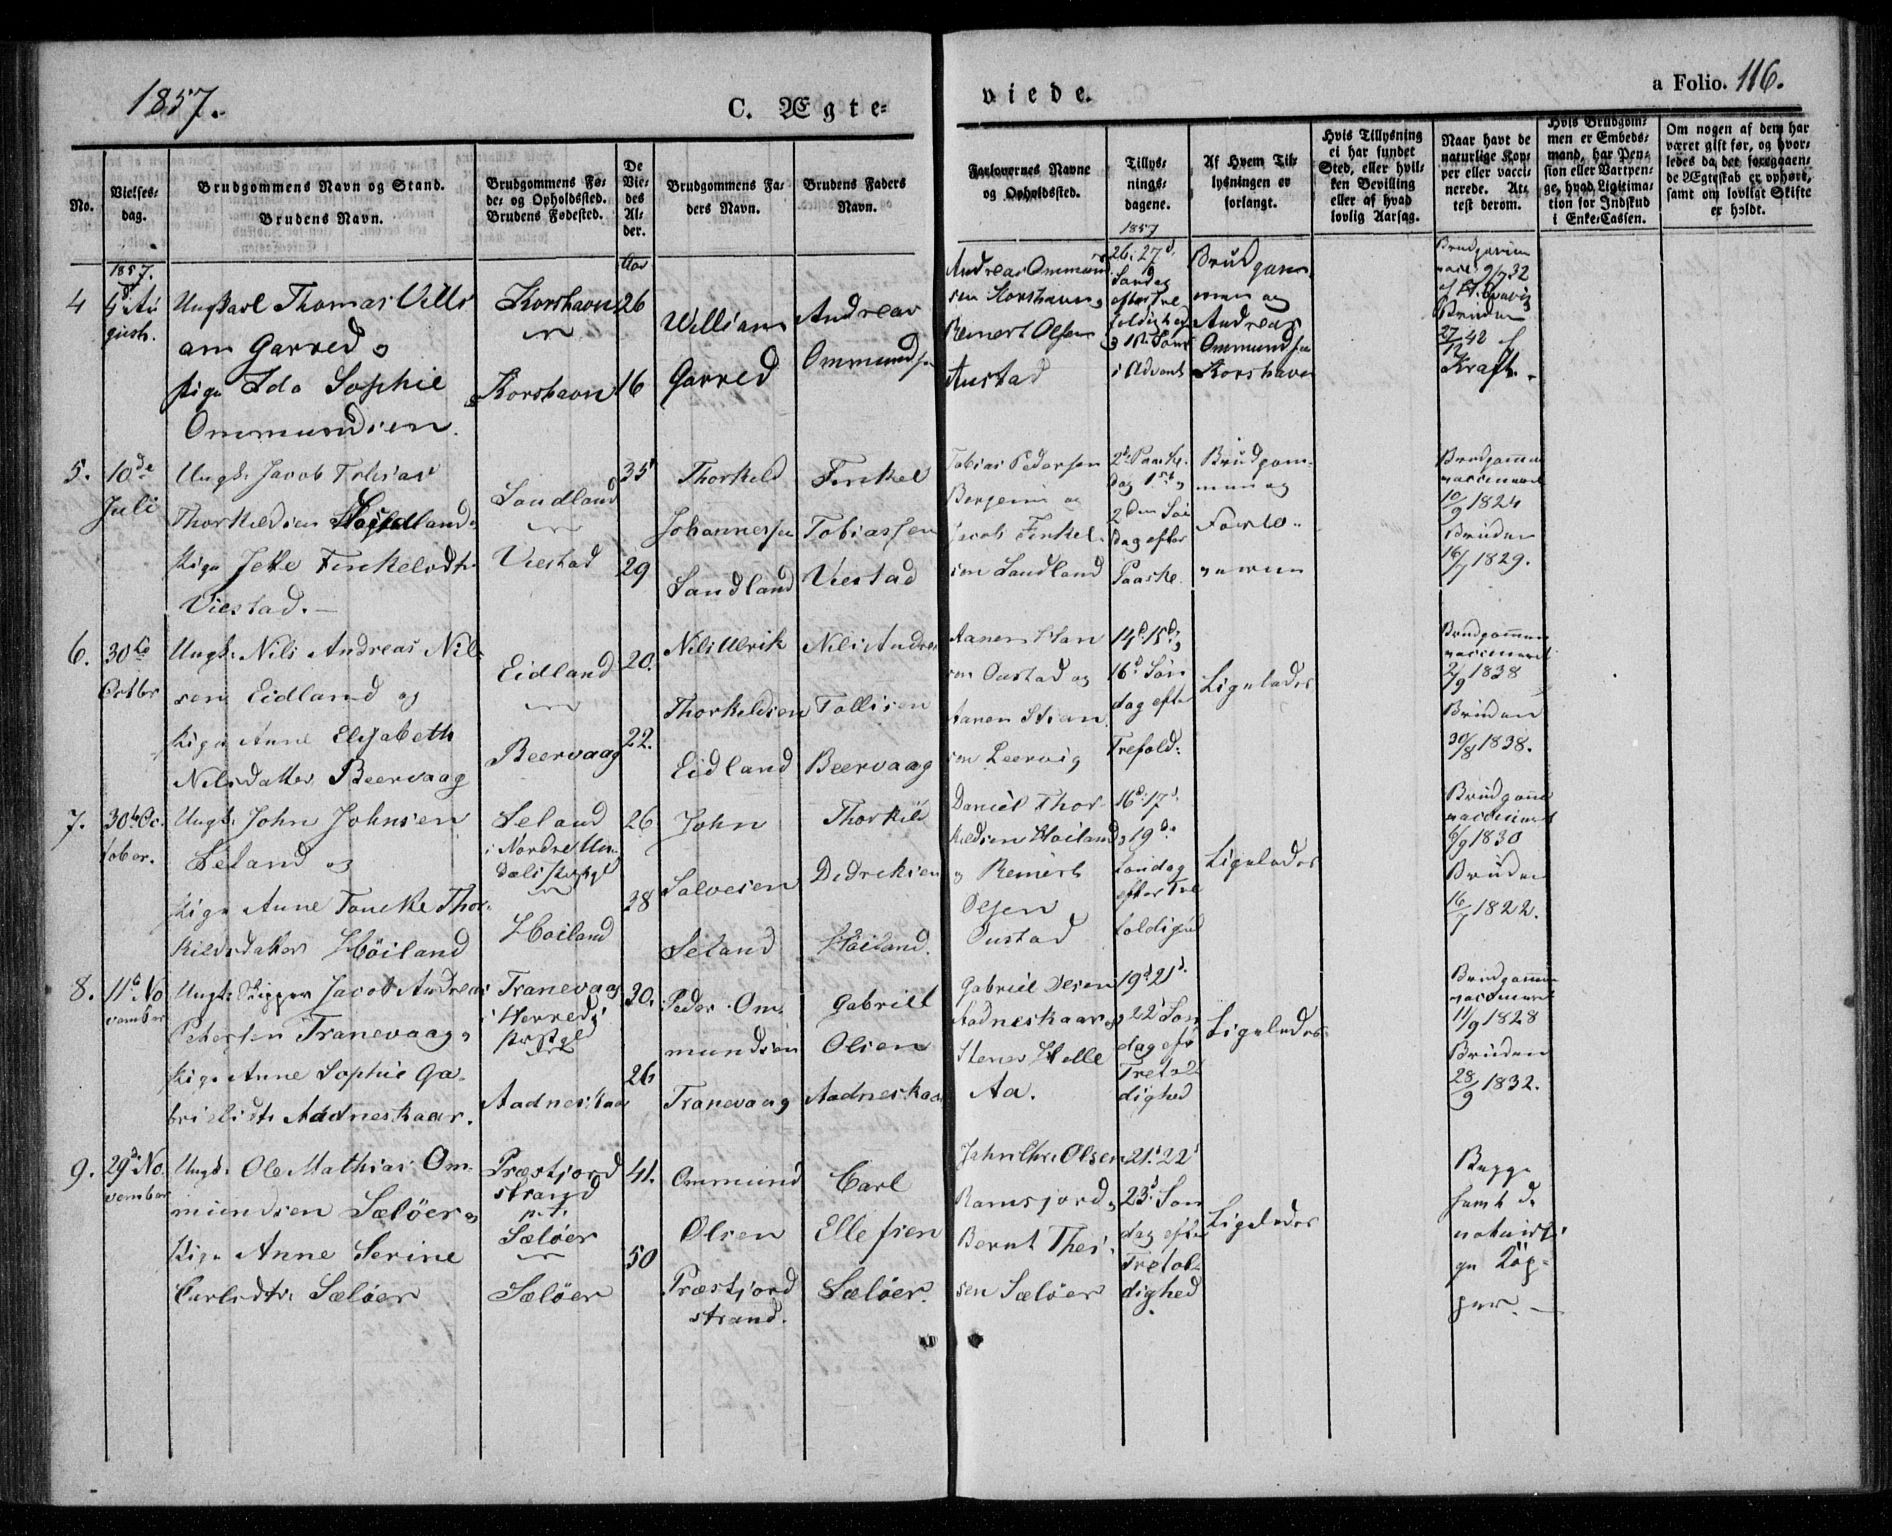 1857.
C. Ægte=
viede.
a Folio. 116.
No.
Vielses-
dag.
Brudgommens Navn og Stand.
Brudens Navn.
Brudgommens Fø-
de- og Opholdssted.
Brudens Fødested.
De
Vie-
des
Al-
der.
Brudgommens Fa-
ders Navn.
Brudens Faders
Navn.
Forlovernes Navne
og Opholdssted.
Tillys-
nings-
dagene.
Af Hvem Til-
lysningen er
forlangt.
Hvis Tillysning
ei har fundet
Sted, eller hvil-
ken Bevilling
eller af hvad
lovlig Aarsag.
Naar havt de
naturlige Kop-
per eller vacci-
nerede. At-
test derom.
Hvis Brudgom-
men er Embeds-
mand, har Pen-
sion eller Vartpen-
ge, hvad Ligitima-
tion for Indskud
i Enke-Cassen.
Om nogen af dem har
været gift før, og hvor-
ledes da det foregaaen-
de Ægteskab er ophørt,
samt om lovligt Skifte
er holdt.
4
1857.
4d Au
gust.
Ungkarl Thomas Villi
am Garred o
Pige Ida Sophie
Ommundsen.
Korshavn
Korshavn
Aar
26
16
William
Garred
Andreas
Ommundsen
Andreas Ommund
sen Korshavn o
Reinert Olsen
Austad
1857
26. 27d
Søndag
efter Tre
foldighed
o 1ste Sønd
i Advent
Brudgom
men og
Andreas
Ommundsen
Korshavn
Brudgommen
vacc. 9/7 32
Bruden
27/12 42 f
Kraft.
5.
10de
Juli
Ungk. Jacob Tobias
Thorkildsen Sandland o
Pige Jeke Tinkelsdtr
Viestad.
Sandland
Viestad
35
29
Thorkeld
Johannessen
Sandland
Tinkel
Tobiassen
Viestad
Tobias Pedersen
Bergeim og
Jacob Tinkel
sen Sandland
2d Paaske
dag 1ste o
2den Søn
dag efter
Paaske.
Brudgom
men og
Forlo-
veren
Brudgommen
vaccineret
10/9 1824
Bruden
16/7 1829.
6.
30te
Octbr
Ungk. Nils Andreas Nil
sen Eidland og
Pige Anne Elisabeth
Nilsdatter Beervaag
Eidland
Beervaag
20.
22.
Nils Ulrik
Thorkeldsen
Eidland
Nils Andre
Tollisen
Beervaag
Aanen Han
sen Oustad og
Aanen Stian
sen Leervig
14d 15d o
16d Søn
dag efter
Trefold:
Ligeledes
Brudgommen
vaccineret
2/9 1838
Bruden
30/8 1838.
7.
30te Oc
tober.
Ungk. John Johnsen
Seland og
Pige Anne Toncke Thor
kildsdatter Høiland
Seland
i Nordre Un
dals Præstgd
Høiland
26
38
John
Salvesen
Seland
Thorkild
Didriksen
Høiland.
Daniel Thor
kildsen Høiland
o Reinert
Olsen
Oustad
16d 17d
o 19de
Søndag
efter Tre
foldighed
Ligeledes
Brudgommen
vaccineret
6/9 1830
Bruden
16/7 1822.
8.
11te No
vember
Ungk. Skipper Jacob Andreas
Petersen Tranevaag o
Pige Anne Sophie Ga-
brielsdtr Aadneskaar.
Tranevaag
i Herreds
Præstgd
Aadneskaar
30.
26
Peder Om-
mundsen
Tranevaag
Gabriel
Olsen
Aadneskaar
Gabriel Olsen
Aadneskaar o
Stener Helle
Aa.
19d 21d
o 22d Søn
dag eft
Trefol
dighed
Ligeledes
Brudgommen
vaccineret
11/9 1828
Bruden
28/9 1832.
9.
29de No
vember
Ungk. Ole Mathias Om-
mundsen Seløer o
Pige Anne Serine
Carlsdtr. Seløer
Præstjord
strand
p.t.
Seløer
Seløer
41.
50
Ommund
Olsen
Præstjord
strand.
Carl
Ellefsen
Seløer.
John Chr. Olsen
Ramsjord o
Bernt Thei-
sen Seløer
21d 22d
23d Søn
dag eft
Trefol-
dighed
Ligeledes
Begge
havt de
naturli-
ge Kop-
per.